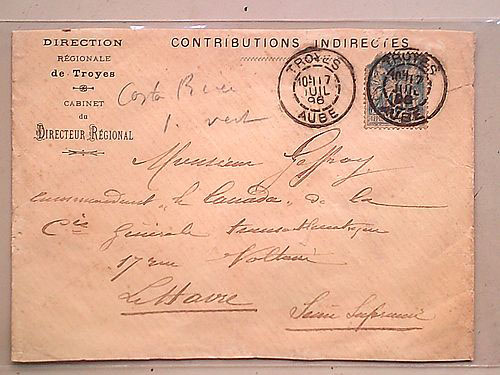 DIRECTION
RÉGIONALE
de Troyes
CABINET
du
DIRECTEUR RÉGIONAL
CONTRIBUTIONS INDIRECTES
TROYES
10H 17
JUIL
96
AUBE
TROYES
10H 17
JUIL
96
AUBE
Costa Rica
1. vert
Monsieur Geffroy
commandant "le Canada" de la
Cie Générale transatlantique
17 rue Voltaire
Le Havre
Seine Inférieure